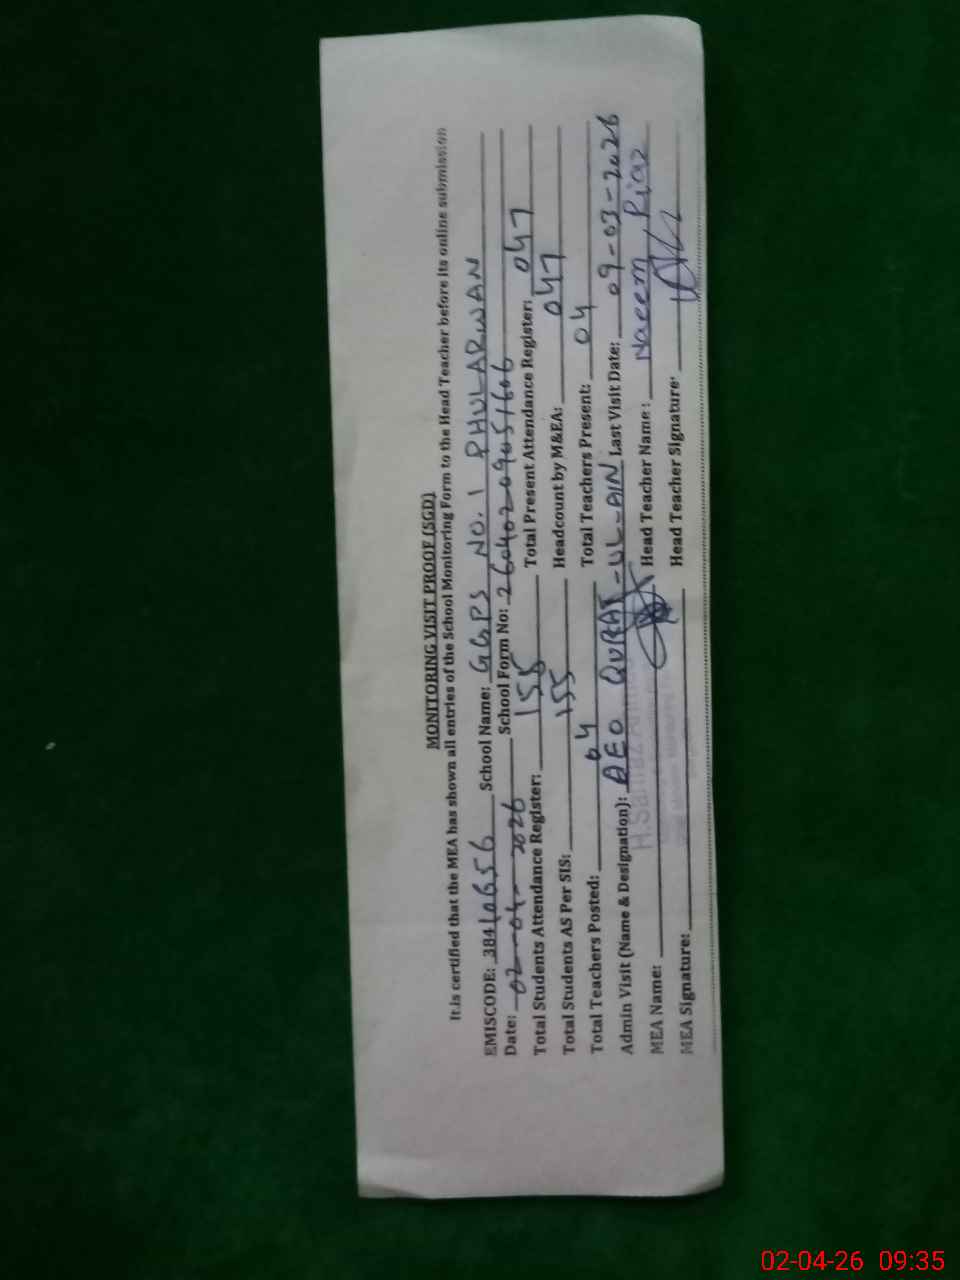 MONITORING VISIT PROOF (SGD)
It is certified that the MEA has shown all entries of the School Monitoring Form to the Head Teacher before its online submission
EMISCODE: 38410656 School Name: GGPS NO. 1 PHULARWAN
Date: 02-04-2026 School Form No: 26040209051606
Total Students Attendance Register: 155 Total Present Attendance Register: 047
Total Students AS Per SIS: 155 Headcount by M&EA: 047
Total Teachers Posted: 04 Total Teachers Present: 04
Admin Visit (Name & Designation): AEO QURAT-UL-AIN Last Visit Date: 09-03-2026
MEA Name: Head Teacher Name: Naeem Riaz
MEA Signature: Head Teacher Signature:
02-04-26 09:35